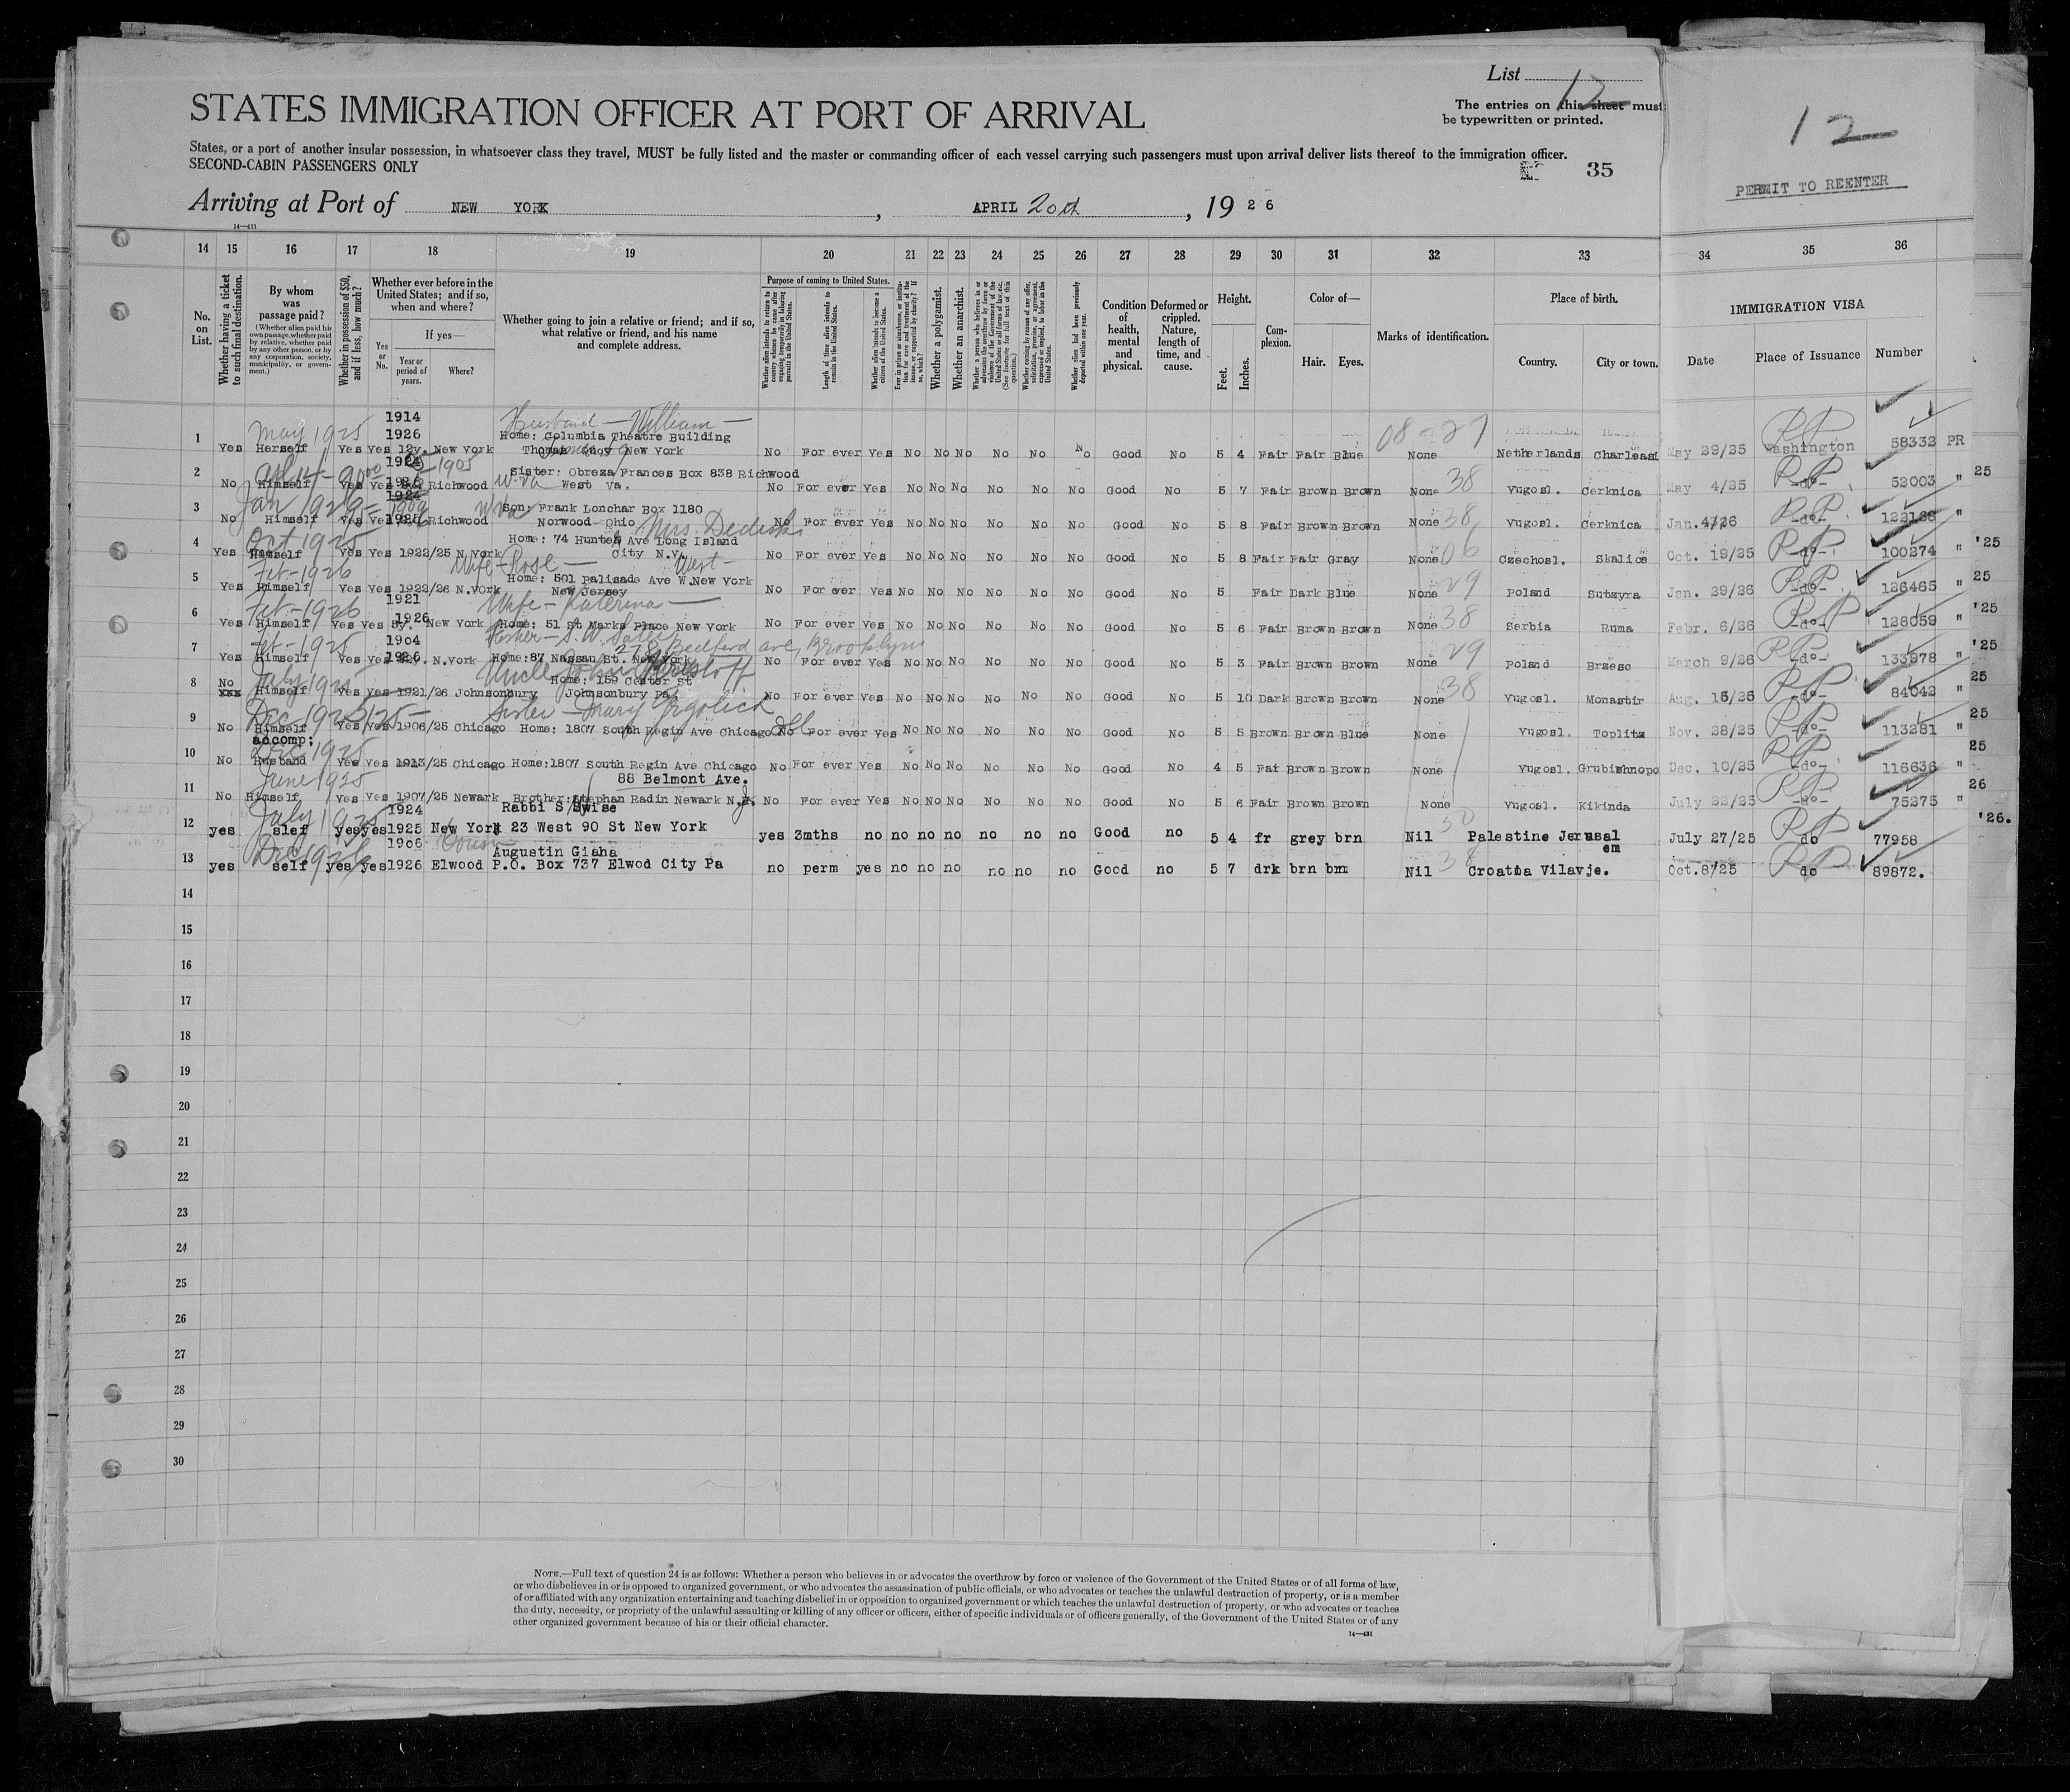 List 12
STATES IMMIGRATION OFFICER AT PORT OF ARRIVAL
The entries on this sheet must
be typewritten or printed.
States, or a port of another insular possession, in whatsoever class they travel, MUST be fully listed and the master or commanding officer of each vessel carrying such passengers must upon arrival deliver lists thereof to the immigration officer.
SECOND-CABIN PASSENGERS ONLY
35
12
PERMIT TO REENTER
Arriving at Port of NEW YORK, APRIL 20th, 19 26
14—431
14 15 16 17 18 19 20 21 22 23 24 25 26 27 28 29 30 31 32 33 34 35 36
No. on List.
Whether having a ticket to such final destination.
By whom was passage paid?
(Whether alien paid his own passage, whether paid by relative, whether paid by any other person, or by any corporation, society, municipality, or government.)
Whether in possession of $50, and if less, how much?
Whether ever before in the United States; and if so, when and where?
If yes—
Yes or No.
Year or period of years.
Where?
Whether going to join a relative or friend; and if so, what relative or friend, and his name and complete address.
Purpose of coming to United States.
Whether alien intends to return to country whence he came after engaging temporarily in laboring pursuits in the United States.
Length of time alien intends to remain in the United States.
Whether alien intends to become a citizen of the United States.
Whether a polygamist.
Whether an anarchist.
Condition of health, mental and physical.
Deformed or crippled. Nature, length of time, and cause.
Height.
Feet. Inches.
Complexion.
Color of—
Hair. Eyes.
Marks of identification.
Place of birth.
Country. City or town.
IMMIGRATION VISA
Date Place of Issuance Number
May 1925 1914 Husband — William —
1926 Home: Columbia Theatre Building 08-27
1 Yes Herself Yes Yes 12y. New York New York No For ever Yes No No No No No No Good No 5 4 Fair Fair Blue None Netherlands May 29/25 Washington 58332 PR
2 1924 Sister: Obreza Frances Box 838 Richwood
No Himself Yes Yes Richwood W.Va West Va. No For ever Yes No No No No No No Good No 5 7 Fair Brown Brown None 38 Yugosl. Cerknica May 4/25 -do- 52003 " 25
3 Jan 1926 1924 Son: Frank Lonchar Box 1180
No Himself Yes Yes Richwood W Va Norwood Ohio No For ever Yes No No No No No No Good No 5 8 Fair Brown Brown None 38 Yugosl. Cerknica Jan. -do- "
4 Oct 1925 Home: 74 Hunter Ave Long Island
Yes Himself Yes Yes 1922/25 N.York City N.Y. No For ever Yes No No No No No No Good No 5 8 Fair Fair Gray None 06 Czechosl. Skalice Oct. 19/25 -do- 100274 " '25
5 Feb-1926 Wife-Rose — West-
Home: 501 Palisade Ave W.New York
Yes Himself Yes Yes 1922/26 N.York New Jersey No For ever Yes No No No No No No Good No 5 Fair Dark Blue None 29 Poland Subzyra Jan. 29/26 -do- 126465 " 25
6 Feb-1926 1921 Wife - Katerina —
Yes Himself Yes Yes 5y. 1926 New York Home: 51 St Marks Place New York No For ever Yes No No No No No No Good No 5 6 Fair Brown Brown None 38 Serbia Ruma Febr. 6/26 -do- 128059 " '25
7 Feb-1925 1904 278 Bedford ave, Brooklyn
Yes Himself Yes Yes 1926 N.York Home: 87 Nassau St. New York No For ever Yes No No No No No No Good No 5 3 Fair Brown Brown None 29 Poland Brzesc March 9/26 -do- 133978 " '25
8 No July 1925 Uncle John Kristoff
Home: 159 Center St
xxx Himself Yes Yes 1921/26 Johnsonbury Johnsonbury Pa. No For ever Yes No No No No No No Good No 5 10 Dark Brown Brown None 38 Yugosl. Monastir Aug. 15/25 -do- 84042 " 25
9 Dec 1925 Sister — Mary
No Himself Yes Yes 1906/25 Chicago Home: 1807 South Regin Ave Chicago Ill No For ever Yes No No No No No No Good No 5 5 Brown Brown Blue None Yugosl. Toplitz Nov. 28/25 -do- 113281 " 25
accomp:
10 Dec 1925
No Husband Yes Yes 1913/25 Chicago Home:1807 South Regin Ave Chicago No For ever Yes No No No No No No Good No 4 5 Fai Brown Brown None Yugosl. Grubishnopo Dec. 10/25 -do- 116636 " 25
11 June 1925 88 Belmont Ave.
No Himself Yes Yes 1907/25 Newark Brother:Stephan Radin Newark N.J. No For ever Yes No No No No No No Good No 5 6 Fair Brown Brown None Yugosl. Kikinda July 22/25 -do- 75275 " 26
12 July 1925 1924 Rabbi S Wise
yes slef yes yes 1925 New York 23 West 90 St New York yes 3mths no no no no no no no Good no 5 4 fr grey brn Nil Palestine Jerusalem July 27/25 do 77958 '26.
13 Dec 1925 1906 Cousin Augustin Giaha
yes self yes yes 1926 Elwood P.O. Box 737 Elwod City Pa no perm yes no no no no no no Good no 5 7 drk brn brn Nil 38 Croatia Vilavje. Oct.8/25 do 89872.
14
15
16
17
18
19
20
21
22
23
24
25
26
27
28
29
30
NOTE.—Full text of question 24 is as follows: Whether a person who believes in or advocates the overthrow by force or violence of the Government of the United States or of all forms of law,
or who disbelieves in or is opposed to organized government, or who advocates the assassination of public officials, or who advocates or teaches the unlawful destruction of property, or is a member
of or affiliated with any organization entertaining and teaching disbelief in or opposition to organized government or which teaches the unlawful destruction of property, or who advocates or teaches
the duty, necessity, or propriety of the unlawful assaulting or killing of any officer or officers, either of specific individuals or of officers generally, of the Government of the United States or of any
other organized government because of his or their official character.
14—431